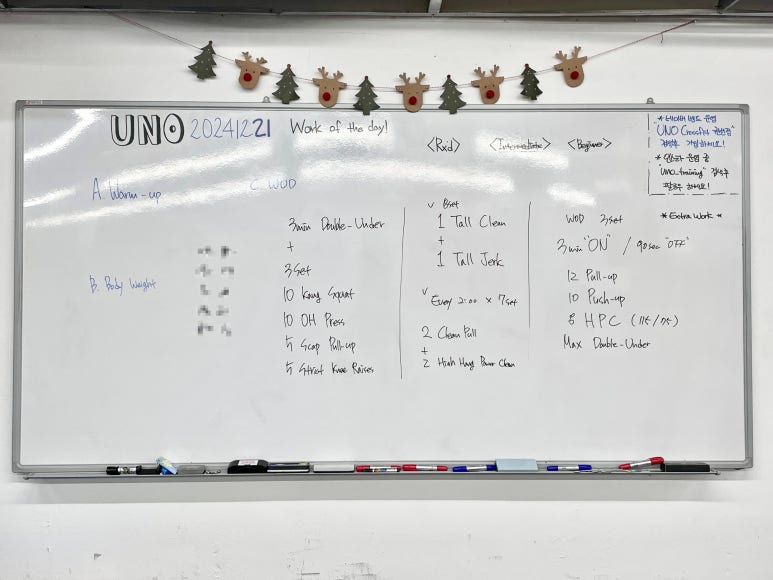 UNO 20241221 Work of the day!
<Rx'd> <Intermediate> <Beginner>
* 네이버 밴드 운영
"UNO Crossfit
가입하세요!
"uno_training" 검색후
팔로우 하세요!
* Extra Work *
A. Warm-up
B. Body Weight
C. WOD
3min Double-Under
+
3Set
10 Kang Squat
10 OH Press
5 Scap Pull-up
5 Strict Knee Raises
√ 8set
1 Tall Clean
+
1 Tall Jerk
√ Every 2:00 × 7set
2 Clean Pull
+
2 High Hang Power Clean
WOD 3set
3min "ON" / 90sec "OFF"
12 Pull-up
10 Push-up
5 HPC
Max Double-Under